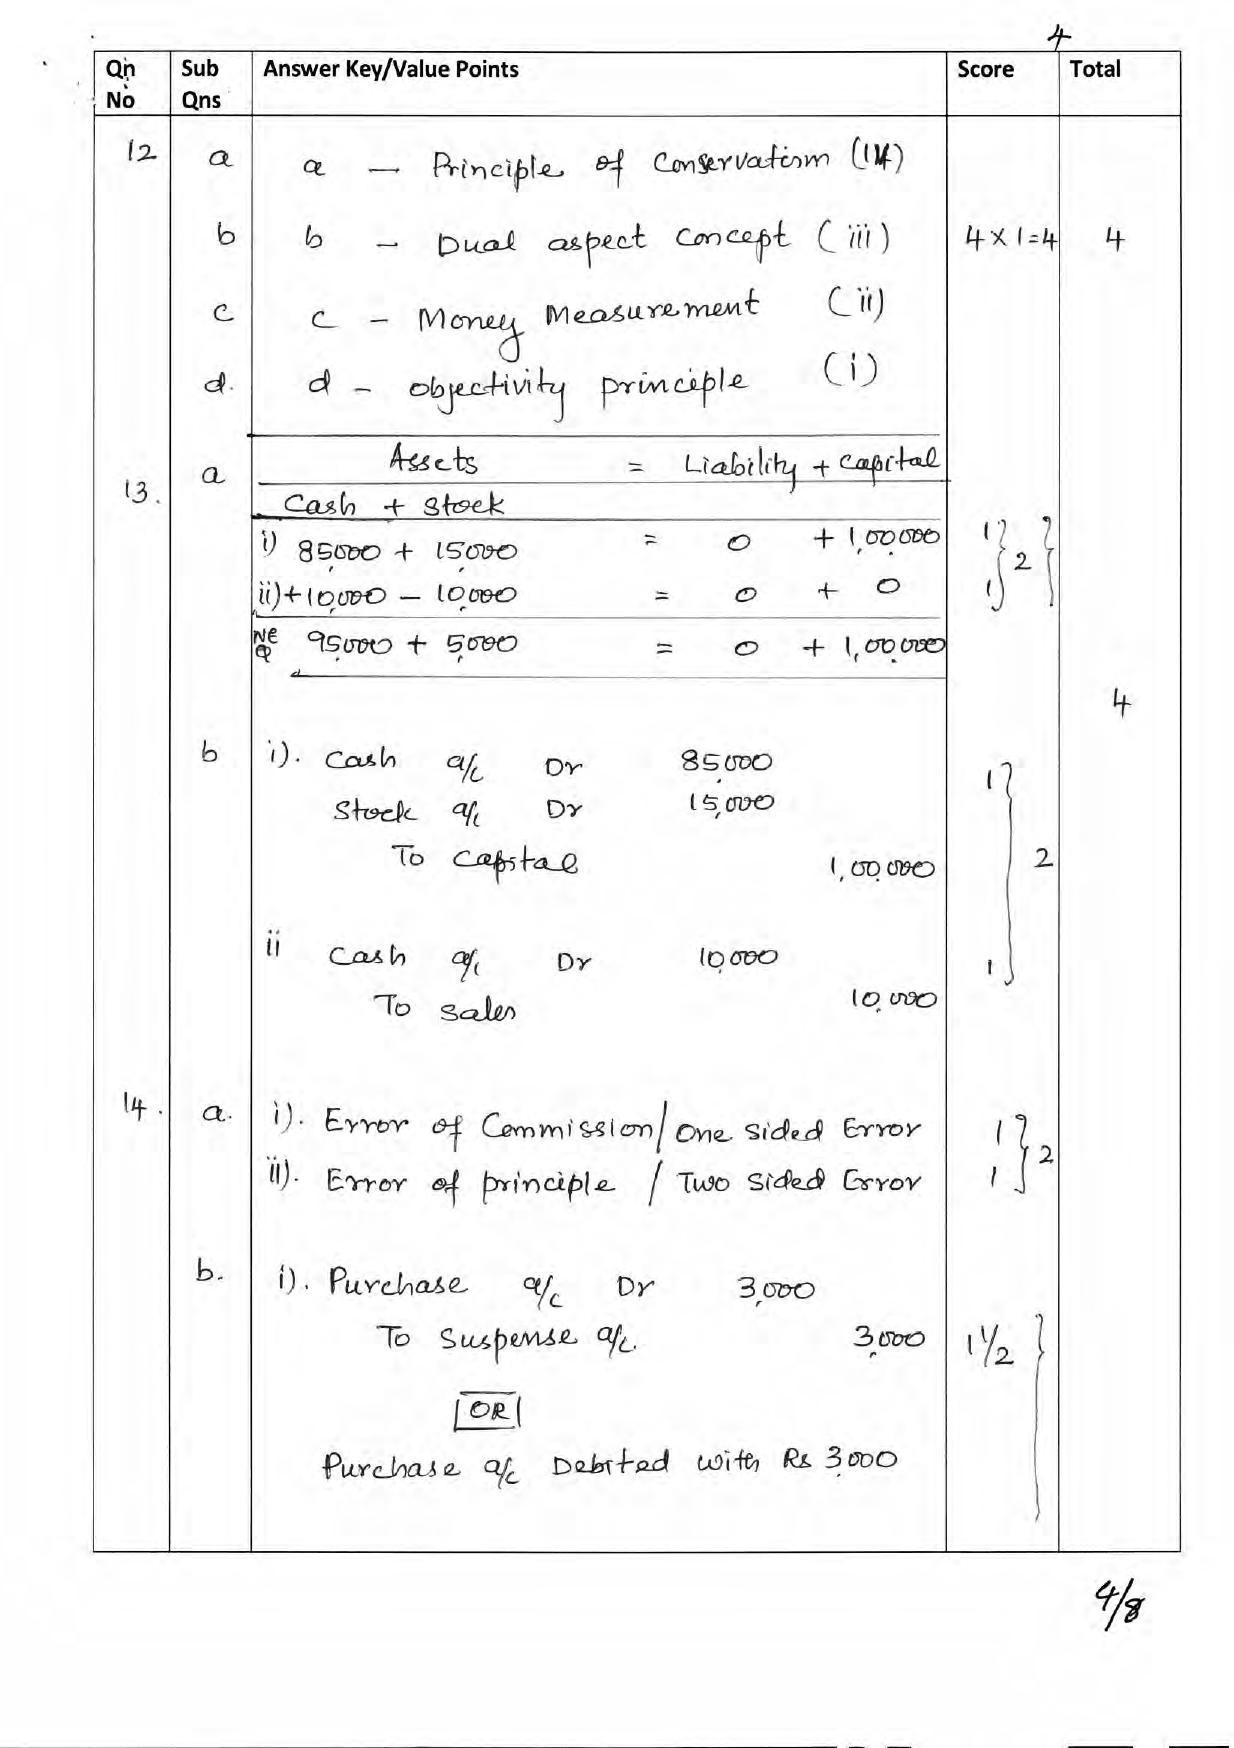 4
Qn No Sub Qns Answer Key/Value Points Score Total
12 a a — Principle of Conservatism (iv)
b b - Dual aspect concept (iii) 4 x 1=4 4
c c - Money Measurement (ii)
d. d - objectivity principle (i)
13. a Assets = Liability + capital
Cash + stock
i) 85,000 + 15,000 = 0 + 1,00,000 1 } 2
ii) +10,000 - 10,000 = 0 + 0 1
NEQ 95,000 + 5,000 = 0 + 1,00,000
4
b i). Cash a/c Dr 85,000 1
Stock a/c Dr 15,000
To Capital 1,00,000 2
ii Cash a/c Dr 10,000 1
To sales 10,000
14. a. i). Error of Commission/one sided Error 1 } 2
ii). Error of principle / Two sided Error 1
b. i). Purchase a/c Dr 3,000
To Suspense a/c. 3,000 1 1/2
OR
Purchase a/c Debited with Rs 3,000
4/8